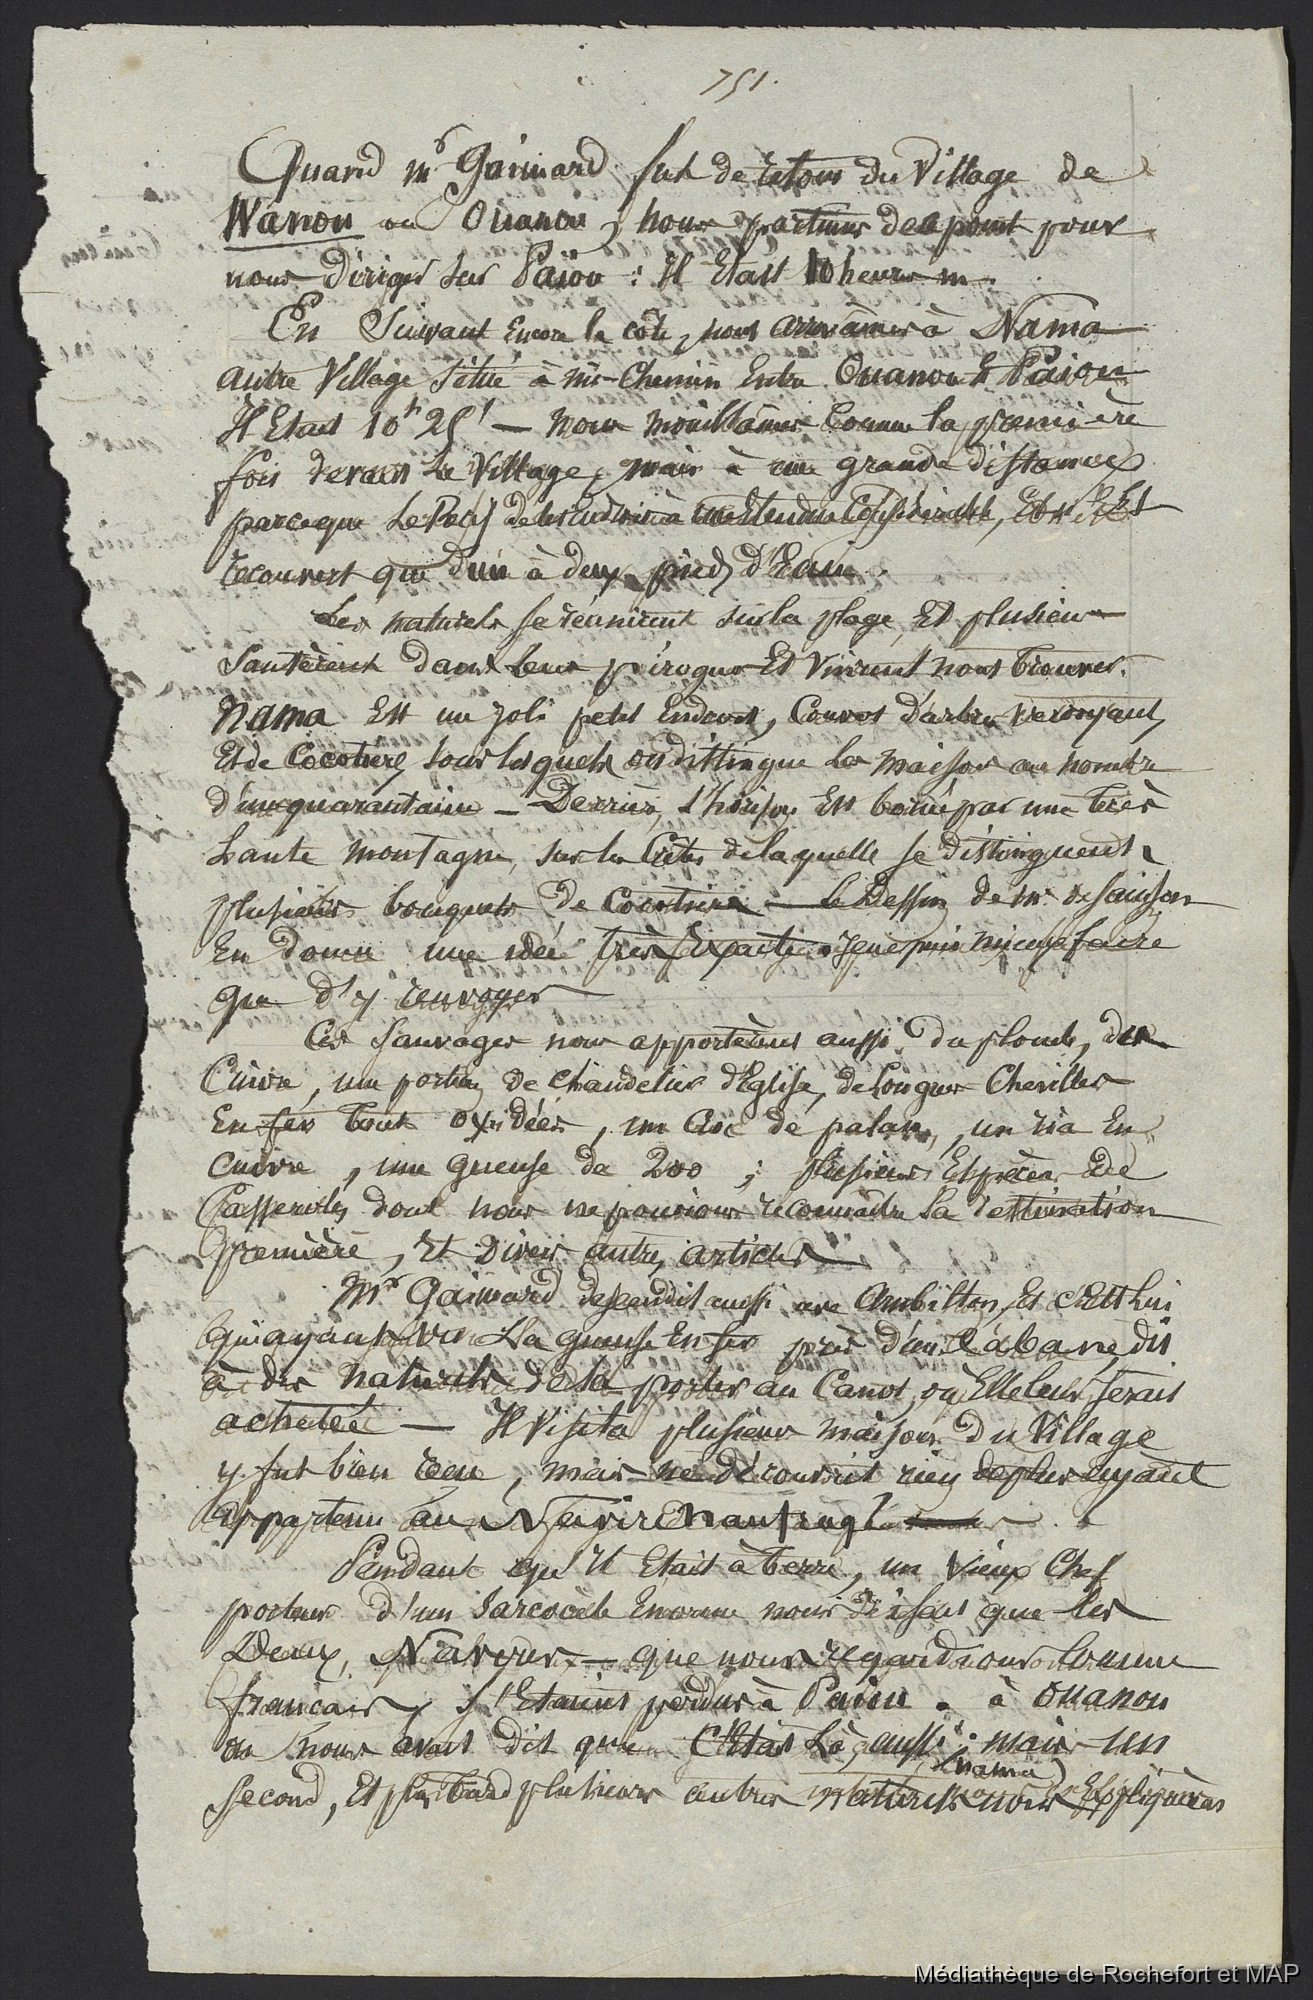 751.
Quand mr Gaimard fut de retour du Village de
Wanou ou Ouanou, nous partimes de ce point pour
nous diriger sur Païou : Il Etait 10 heures m.
En Suivant Encore la côte, nous arrivâmes à Nama
autre Village situé à mi-Chemin Entre Ouanou & Païou
Il Etait 10h 25' — nous mouillâmes Comme la première
fois devant Le Village, mais à une grande distance
parceque Le Recif de cet Endroit à une Etendue Considérable, Et n'Est
recouvert que d'un à deux pieds d'Eau.
Les naturels se réunirent sur la plage, Et plusieurs
Sautèrent dans Leurs pirogues Et vinrent nous trouver.
Nama Est un joli petit Endroit, Couvert d'arbres verdoyant,
Et de Cocotiers, sous lesquels on distingue les maisons au nombre
d'une quarantaine — Derrière, l'horison Est borné par une très
haute montagne, sur les Crêtes de laquelle se distinguent
plusieurs bouquets de Cocotiers — Le Dessin de mr de Sainson
En donne une idée très Exacte, je ne puis mieux faire
que d'y renvoyer
Ces Sauvages nous apportèrent aussi du plomb, du
Cuivre, une portion de Chandelier d'Eglise, de longues Chevilles
En fer tout oxidées, un Croc de palan, un réa En
Cuivre, une gueuse de 200 ; plusieurs Espèces de
Casseroles dont nous ne pouvions reconnaître la destination
première, Et divers autres articles
Mr Gaimard descendit aussi avec Ambilton, Et
qui ayant vu La gueuse En fer près d'une Cabane, dit
à des Naturels de la porter au Canot, où Elle leur serait
achetée — Il Visita plusieurs maisons du Village
y fut bien reçu, mais ne découvrit rien de plus ayant
appartenu au Navire Naufragé
Pendant qu'Il Etait à terre, un vieux Chef
porteur d'un Sarcocèle Enorme nous disait que les
Deux Navires — que nous regardions Comme
français, s'Etaient perdus à Païou . à Ouanou
on nous avait dit que C'Etait Là, aussi ; mais un
(nama)
second, Et plus tard plusieurs autres naturels nous Expliquèrent
Médiathèque de Rochefort et MAP